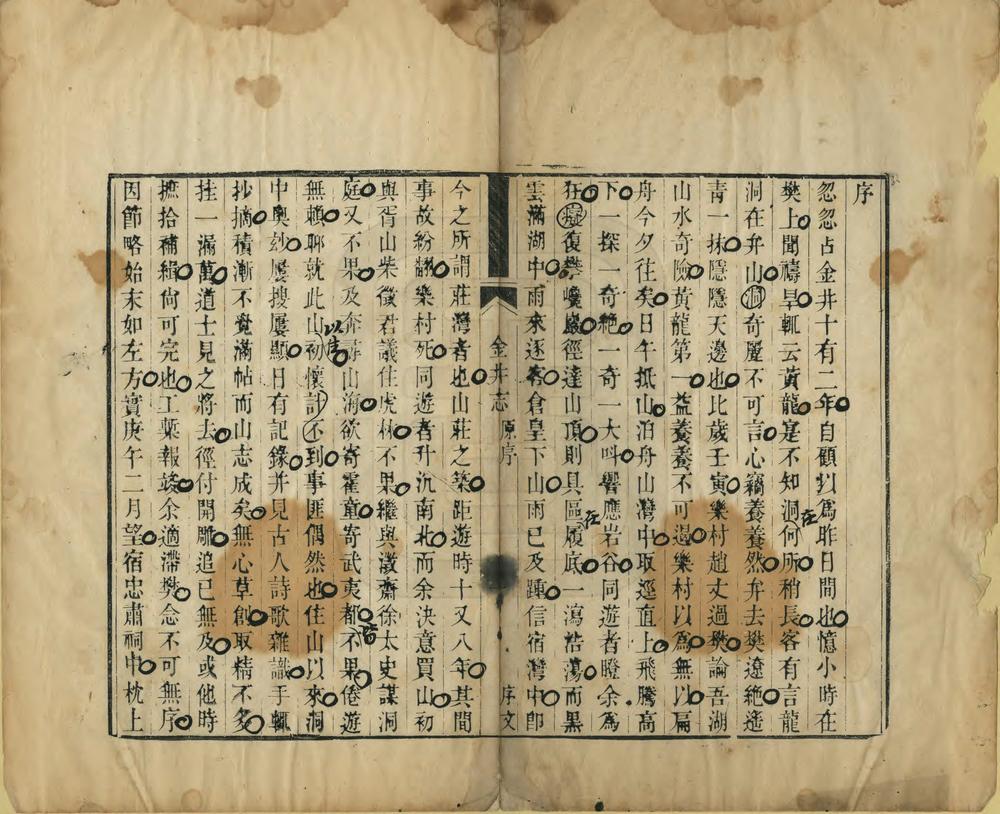 序
忽忽占金井十有二年自顧以爲昨日間也憶小時在
樊上聞禱旱輒云黃龍寔不知洞何所稍長客有言龍
洞在弁山洞奇麗不可言心竊養養然弁去樊遠絶遙
靑一抹隱隱天邊也比歲壬寅樂村趙丈過樊論吾湖
山水奇險黃龍第一益養養不可遏樂村以爲無以扁
舟今夕往矣日午抵山泊舟山灣中取逕直上飛騰高
下一探一奇絶一奇一大呌響應岩谷同遊者瞪余爲
狂癡復攀巉巖徑達山頂則具區履底一瀉浩蕩而黑
雲滿湖中雨來逐客倉皇下山雨已及踵信宿灣中卽
金井志 原序 序文
今之所謂莊灣者也山莊之築距遊時十又八年其間
事故紛翻樂村死同遊者升沉南北而余決意買山初
與胥山柴徵君議住虎林不果繼與瀫齋徐太史謀洞
庭又不果及奔海欲寄霍童寄武夷都不果倦遊
無賴聊就此山初懷計不到事匪偶然也住山以來洞
中奧玅屢搜屢顯日有記錄并見古人詩歌雜識手輒
抄摘積漸不覺滿帖而山志成矣無心草創取精不多
挂一漏萬道士見之將去徑付開雕追已無及或他時
摭拾補緝尙可完也工藁報竣余適滯樊念不可無序
因節略始末如左方實庚午二月望宿忠肅祠中枕上